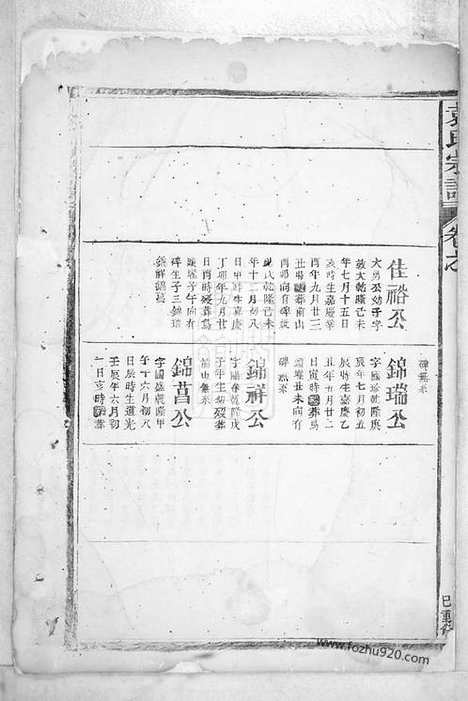 袁氏宗譜 卷之
佳裕公
大勇公幼子字
敦大乾隆己未
年七月十五日
辰時生嘉慶辛
酉年九月廿三
丑時葬南山
酉卯向有碑
氏乾隆己未
年十二月初八
日申時生嘉慶
丁卯年九月廿
日酉時歿葬
午向有
碑生子三錦瑞
錦祥錦莒
碑無未
錦瑞公
字國珍乾隆庚
辰年七月初五
辰時生嘉慶乙
丑年五月廿二
日寅時葬馬
丑未向有
碑無未
錦祥公
字國泰乾隆戊
子年生幼歿葬
前山無未
錦莒公
字國盛乾隆甲
午十六月初八
日辰時生道光
壬辰年六月初
一日亥時葬
巳重修
www.fozhu920.com